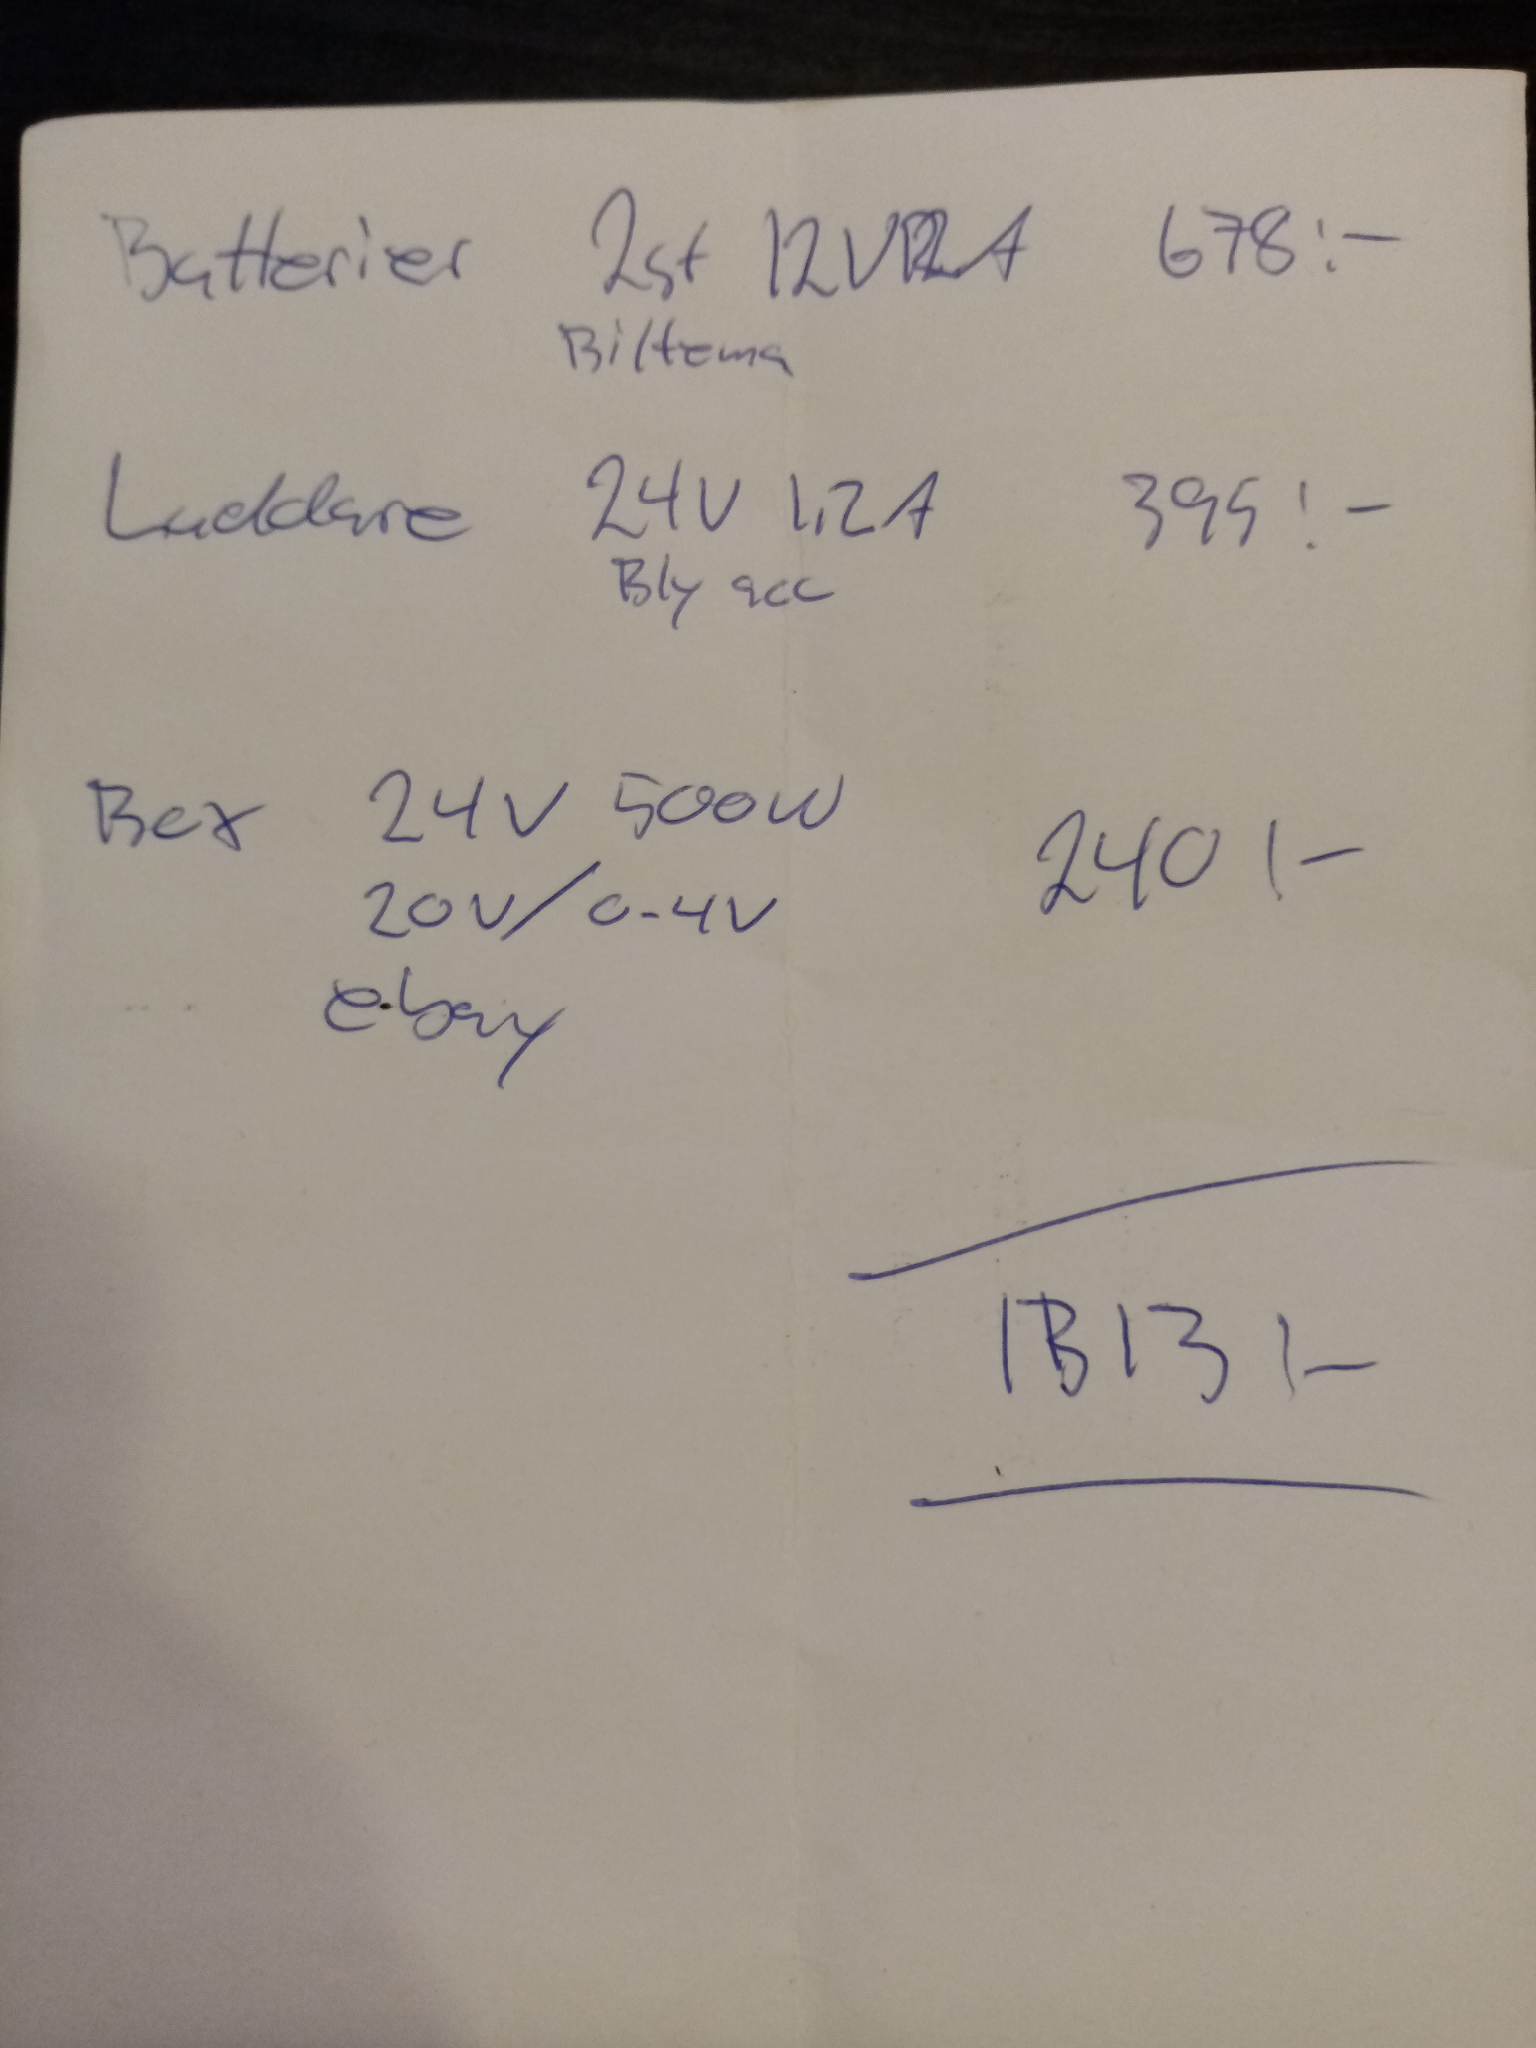 Batterier 2st 12V12A 678:-
Biltema
Laddare 24V 1,2A 395:-
Bly acc
Box 24V 500W 240:-
20V/0-4V
e-bay
1313:-